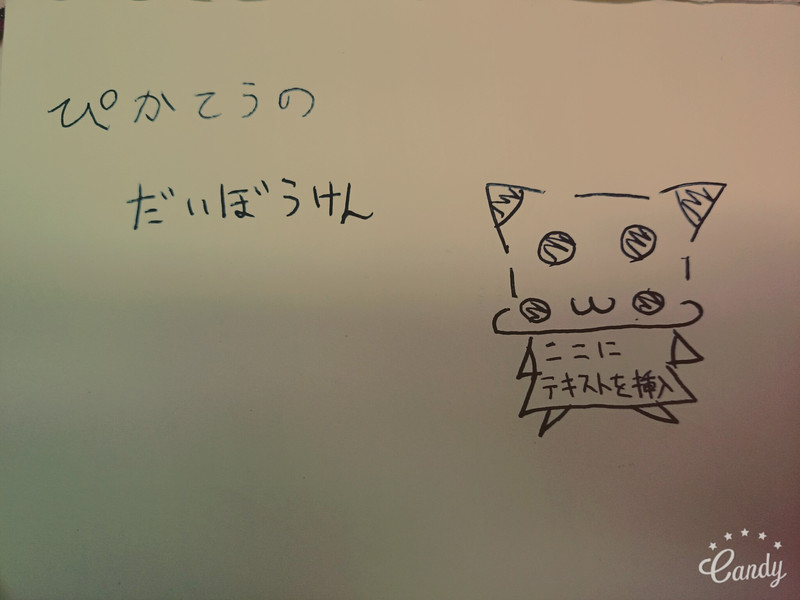 ぴかてうの
だいぼうけん
ω
ここに
テキストを挿入
Candy